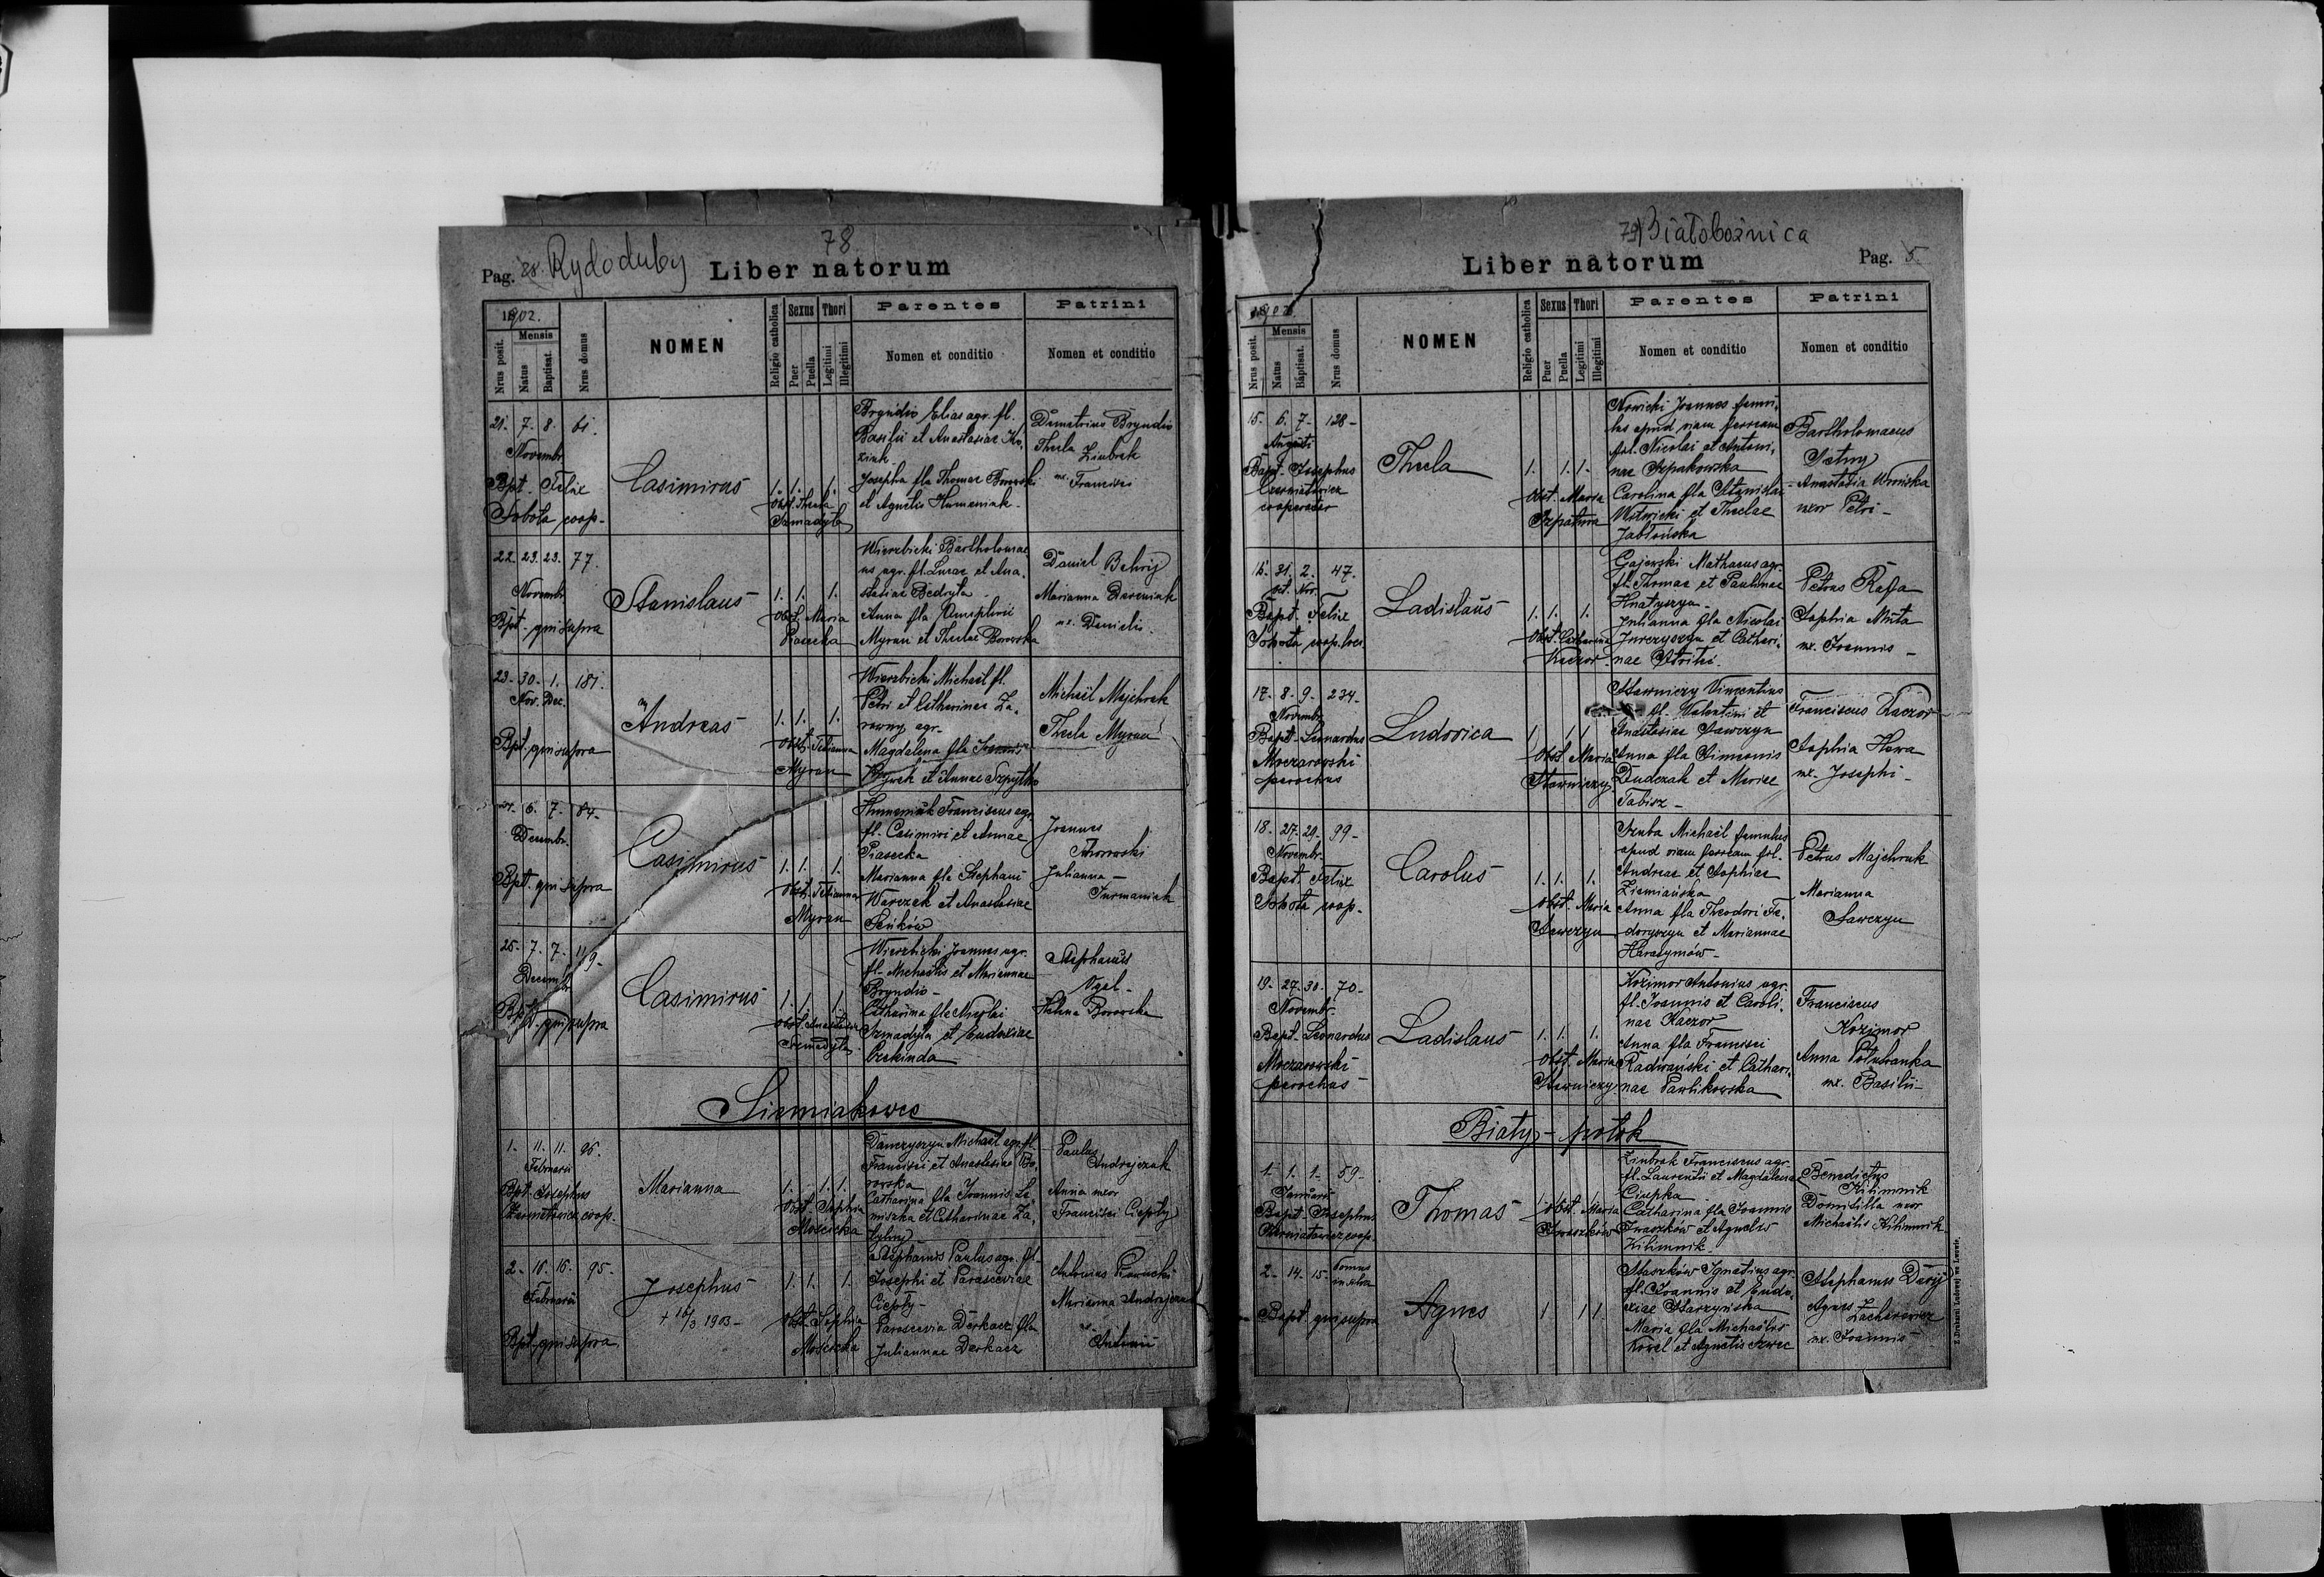 78
Pag. 28. Rydoduby Liber natorum
1902.
Nrus posit.
Mensis
Natus
Baptisat.
Nrus domus
NOMEN
Religio catholica
Sexus
Puer
Puella
Thori
Legitimi
Illegitimi
Parentes
Nomen et conditio
Patrini
Nomen et conditio
21. 7. 8. 61.
Novembr.
Bpt. Felix
Sobota coop.
Casimirus
1. 1. 1.
Obst. Thecla
Szmadyła
Bryndio Elias agr. fl.
Basilii et Anastasiae Ko-
ziuk
Josepha fla Thomae Borowski
et Agnetis Humeniak
Demetrius Bryndio
Thecla Ziubrak
ux. Francisci
22. 23. 23. 77.
Novembr.
Bpt. qui supra
Stanislaus
1. 1. 1.
Obst. Maria
Piasecka
Wierzbicki Bartholomae-
us agr. fl. Lucae et Ana-
stasiae Bedryta
Anna fla Onuphrii
Myron et Theclae Borowska
Daniel Behrij
Marianna
ux. Danielis
23. 30. 1. 181.
Nov. Dec.
Bpt. qui supra
Andreas
1. 1. 1.
Obst. Tetianna
Myron
Wierzbicki Michaël fl.
Petri et Catharinae Za-
rowny agr.
Magdalena fla
et Annae Szpytko
Michaël Majchrak
Thecla Myron
24. 6. 7. 84.
Decembr.
Bpt. qui supra
Casimirus
1. 1. 1.
Obst. Tetianna
Myron
Humeniak Franciscus agr.
fl. Casimiri et Annae
Piasecka
Marianna fla Stephani
Warczak et Anastasiae
Seńków
Joannes
Julianna
Furmaniak
25. 7. 7. 119.
Decembr.
Bpt. qui supra
Casimirus
1. 1. 1.
Obst. Anastasia
Szmadyła
Wierzbicki Joannes agr.
fl. Michaëlis et Mariannae
Bryndio
Catharina fla Nicolai
Szmadyła et Eudoxiae
Czekinda
Stephanus
Helena Borowska
Siemiakowce
1. 11. 11. 96.
Februarii
Bpt. Josephus
Czerniatowicz coop.
Marianna
1. 1. 1.
Obst. Sophia
Mościcka
Danczyszyn Michaël agr. fl.
Francisci et Anastasiae Bo-
rowska
Catharina fla Joannis La-
miszka et Catharinae Za-
Paulus
Andrejczak
Anna uxor
Francisci Ciepły
2. 16. 16. 95.
Februarii
Bpt. qui supra
Josephus
+ 16/3 1903
1. 1. 1.
Obst. Sophia
Mościcka
Stephanus Paulus agr. fl.
Josephi et Parasceviae
Ciepły
Parascevia Derkacz fla
Juliannae Derkacz
Antonius
Marianna Andrejczak
ux. Antonii
79 Białobożnica
Liber natorum Pag. 5
1902.
Nrus posit.
Mensis
Natus
Baptisat.
Nrus domus
NOMEN
Religio catholica
Sexus
Puer
Puella
Thori
Legitimi
Illegitimi
Parentes
Nomen et conditio
Patrini
Nomen et conditio
15. 6. 7. 128
Augusti
Bapt. Josephus
Czerniatowicz
cooperator
Thecla
1. 1. 1.
Obst. Maria
Nowicki Joannes famu-
lus apud viam ferream
fil. Nicolai et Antoni-
nae Szpakowska
Carolina fla Stanislai
et Theclae
Jabłońska
Bartholomaeus
Anastasia
uxor Petri
16. 31. 2. 47.
oct. Nov.
Bapt. Felix
Sobota coop. loci
Ladislaus
1. 1. 1.
Obst. Catharina
Kaczor
Gajewski Mathaeus agr.
fl. Thomae et Paulinae
Hnatyszyn
Julianna fla Nicolai
Jurczyszyn et Cathari-
nae
Petrus Rafa
Sophia
ux. Joannis
17. 8. 9. 234.
Novembr.
Bapt. Leonardus
Moczarowski
parochus
Ludovica
1 1 1
Obst. Maria
Stawniczy
Stawniczy Vincentius
fl. Valentini et
Anastasiae Sawczyn
Anna fla Simeonis
Dudczak et Mariae
Tabisz
Franciscus Kaczor
Sophia Hara
ux. Josephi
18. 27. 29. 99
Novembr.
Bapt. Felix
Sobota coop.
Carolus
1. 1. 1.
Obst. Maria
Sawczyn
Szuba Michaël famulus
apud viam ferream fil.
Andreae et Sophiae
Ziemiańska
Anna fla Theodori Fe-
doryszyn et Mariannae
Harasymów
Petrus Majchruk
Marianna
Sawczyn
19. 27. 30. 70
Novembr.
Bapt. Leonardus
Moczarowski
parochus
Ladislaus
1. 1. 1.
Obst. Maria
Stawniczy
Kozimor Antonius agr.
fl. Joannis et Caroli-
nae Kaczor
Anna fla Francisci
Radwański et Cathari-
nae Pawlikowska
Franciscus
Kozimor
Anna
ux. Basilii
Biały-potok
1. 1. 1. 59
Januarii
Bapt. Josephus
Czerniatowicz coop.
Thomas
Obst. Maria
Iwaszków
Ziubrak Franciscus agr.
fl. Laurentii et Magdalenae
Ciupka
Catharina fla Joannis
Iwaszków et Agnetis
Kilimnik
Benedictus
Kilimnik
Domitilla uxor
Michaëlis Kilimnik
2. 14. 15. Domus
Bapt. qui supra
Agnes
1 1 1
Staszków Ignatius agr.
fl. Joannis et Eudo-
xiae Starzyńska
Maria fla Michaëlis
Kowel et Agnetis Szwec
Stephanus
Agnes Zacharewicz
ux. Joannis
Z Drukarni Ludowej we Lwowie.